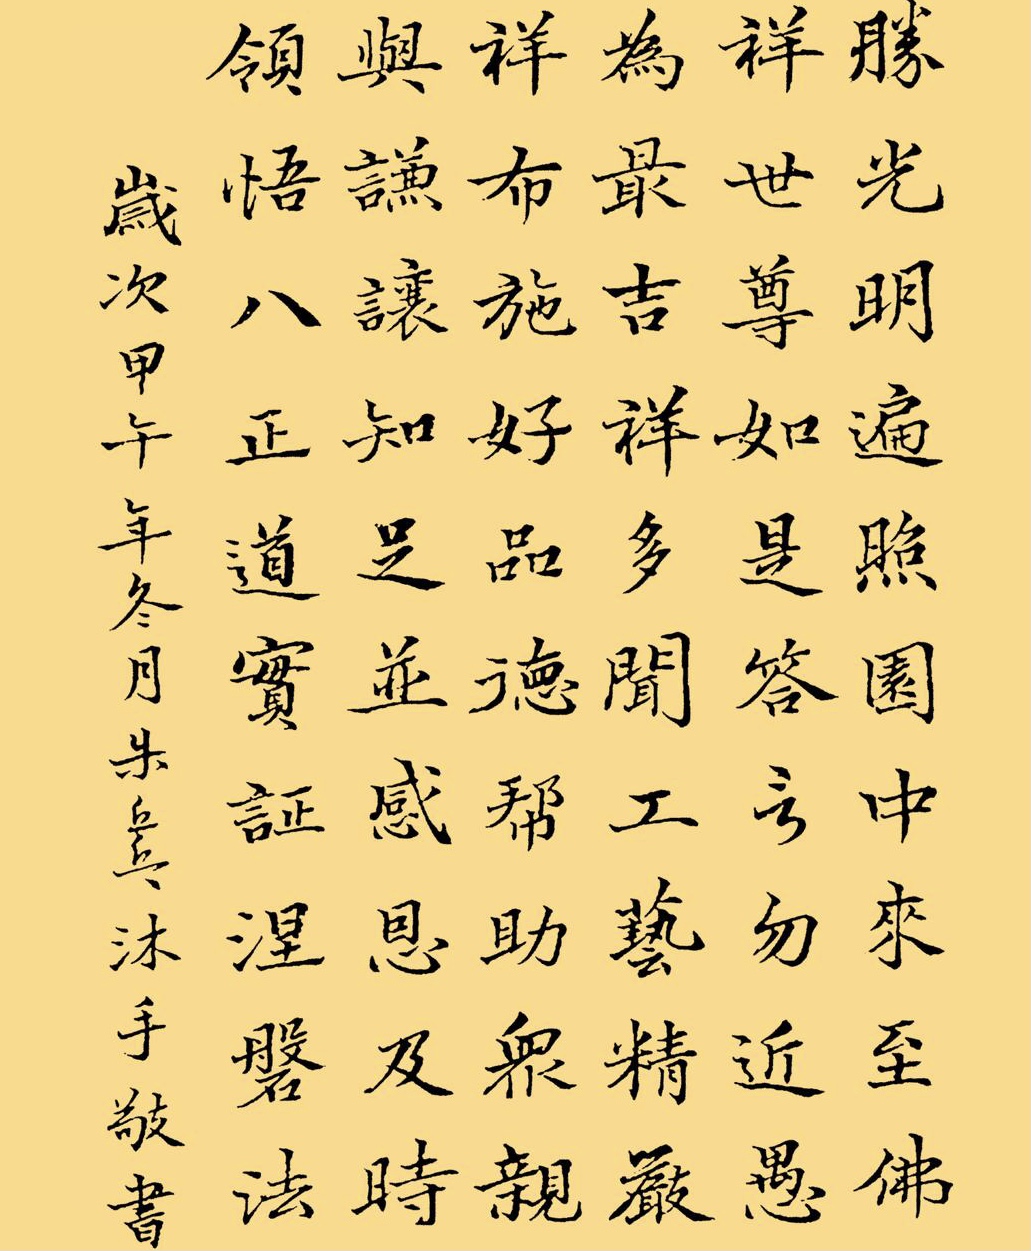 勝光明遍照園中來至佛
祥世尊如是答言勿近愚
為最吉祥多聞工藝精嚴
祥布施好品德帮助眾親
與謙讓知足並感恩及時
領悟八正道實証涅磐法
歲次甲午年冬月朱沐手敬書